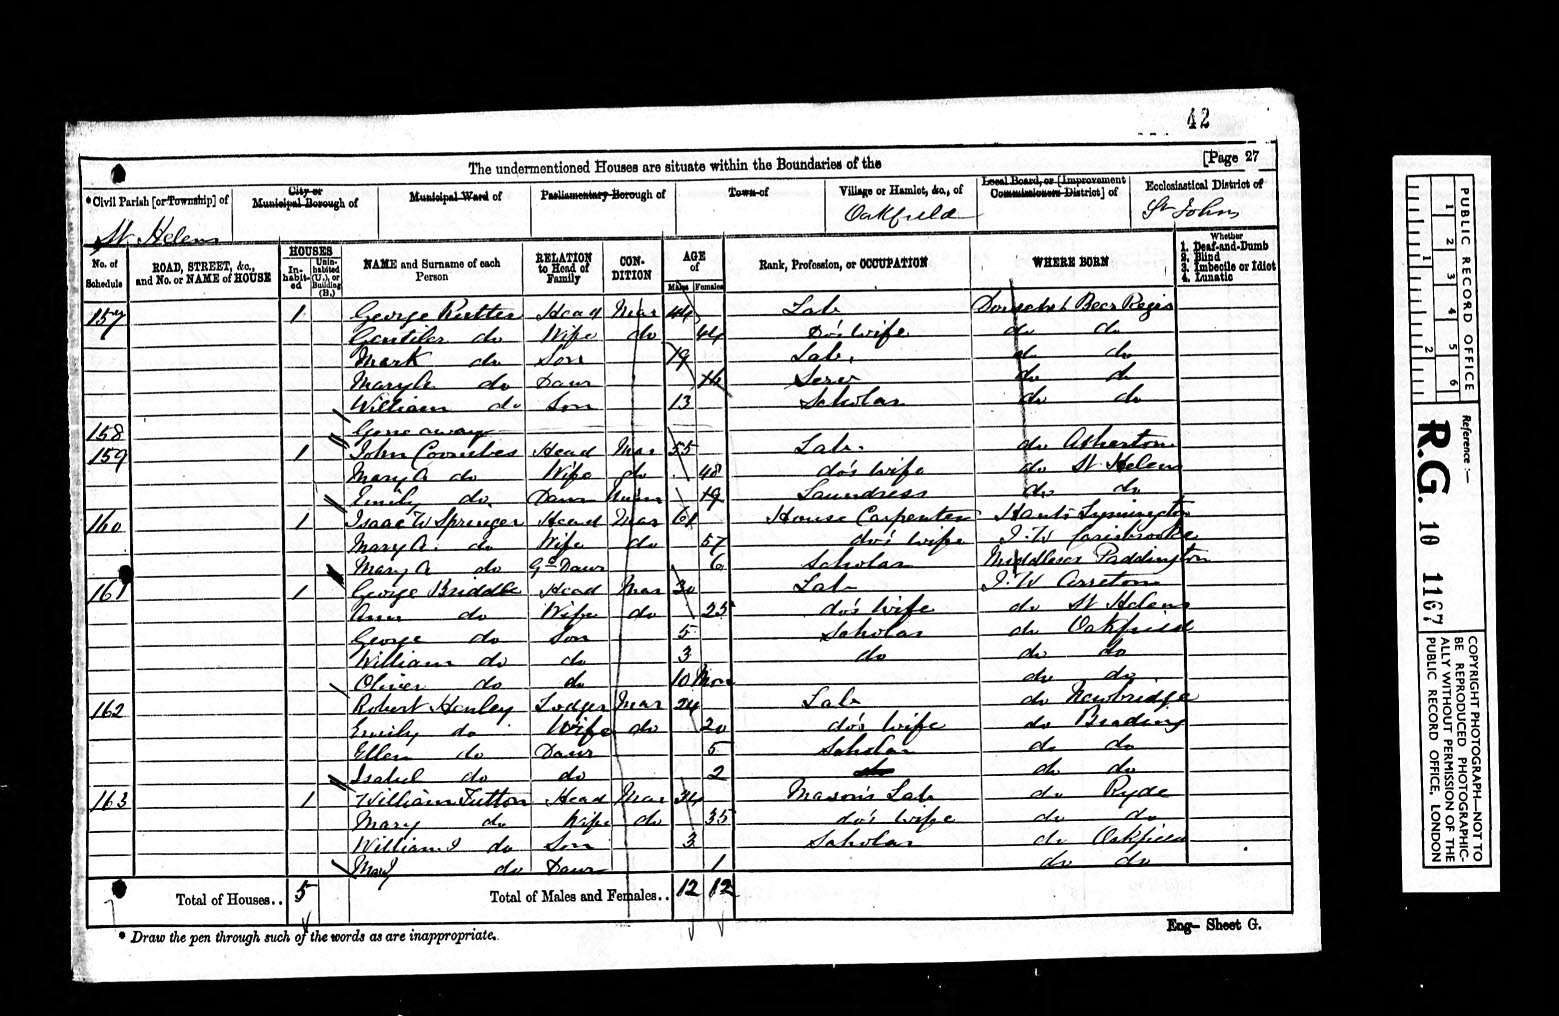 42
The undermentioned Houses are situate within the Boundaries of the [Page 27
*Civil Parish [or Township] of City or Municipal Borough of Municipal Ward of Parliamentary Borough of Town of Village or Hamlet, &c., of Local Board, or [Improvement Commissioners District] of Ecclesiastical District of
St Helens Oakfield St Johns
No. of Schedule ROAD, STREET, &c., and No. or NAME of HOUSE HOUSES In-habit-ed Unin-habited (U.), or Building (B.) NAME and Surname of each Person RELATION to Head of Family CON-DITION AGE of Males Females Rank, Profession, or OCCUPATION WHERE BORN Whether 1. Deaf-and-Dumb 2. Blind 3. Imbecile or Idiot 4. Lunatic
157 1 George Rutter Head Mar 44 Lab Beer Regis
do Wife do 44 Do's wife do do
Mark do Son 19 Lab. do do
Mary A do Daur Serv do do
William do Son 13 Scholar do do
158 Gone away
159 1 John Coombes Head Mar 55 Lab. do
Mary A do Wife do 48 do's wife do St Helens
Emily do Daur 19 Laundress do do
160 1 Isaac W Springer Head Mar 61 House Carpenter Hants Lymington
Mary A. do Wife do 57 do's wife I.W Carisbrooke
Mary A do Gd Daur 6 Scholar Middlesex Paddington
161 1 George Briddle Head Mar 30 Lab I.W Arreton
Ann do Wife do 25 do's wife do St Helens
George do Son 5 Scholar do Oakfield
William do do 3 do do do
Oliver do do 10 Mon do do
162 Robert Henley Lodger Mar 24 Lab do Newbridge
Emily do Wife do 20 do's wife do Brading
Ellen do Daur 5 Scholar do do
Isabel do do 2 do do do
163 1 William Tutton Head Mar 34 Mason's Lab do Ryde
Mary do Wife do 35 do's wife do do
William J do Son 3 Scholar do Oakfield
Mary do Daur 1 do do
Total of Houses.. 5 Total of Males and Females.. 12 12
* Draw the pen through such of the words as are inappropriate. Eng— Sheet G.
PUBLIC RECORD OFFICE
1 2 3 4 5 6
1 2
Reference :—
R.G. 10 1167
COPYRIGHT PHOTOGRAPH—NOT TO
BE REPRODUCED PHOTOGRAPHIC-
ALLY WITHOUT PERMISSION OF THE
PUBLIC RECORD OFFICE, LONDON